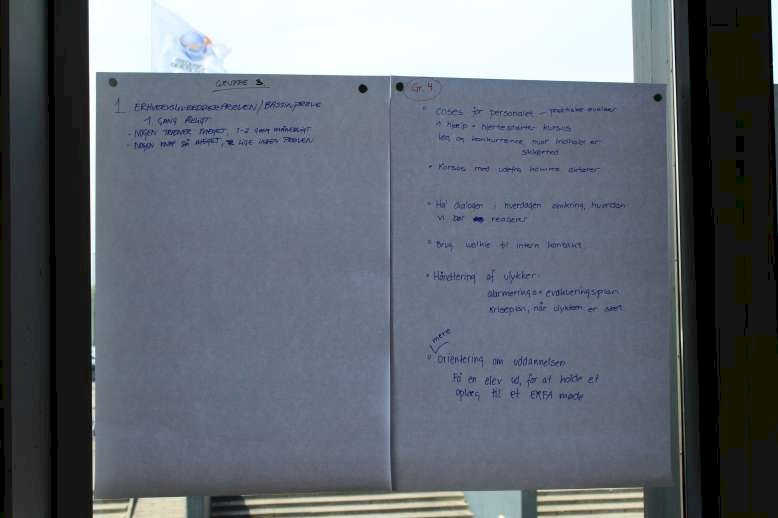 GRUPPE 3
1 ERHVERVSLIVREDDERPRØVEN/BASSINPRØVE
1 GANG ÅRLIGT
- NOGEN TRÆNER MEGET, 1-2 GANG MÅNEDLIGT
- NOGEN KNAP SÅ MEGET, LIGE INDEN PRØVEN
Gr. 4
cases for personalet - praktiske øvelser
1. hjælp + hjertestarter kursus
leg og konkurrence, hvor indholdet er
sikkerhed
Kursus med udefra kommende aktører
Ha' dialogen i hverdagen omkring, hvordan
vi bør reagerer
Brug walkie til intern kontakt
Håndtering af ulykker:
alarmerings- + evakueringsplan
Kriseplan, når ulykken er sket
mere
Orientering om uddannelsen
Få en elev ud, for at holde et
oplæg til et ERFA møde